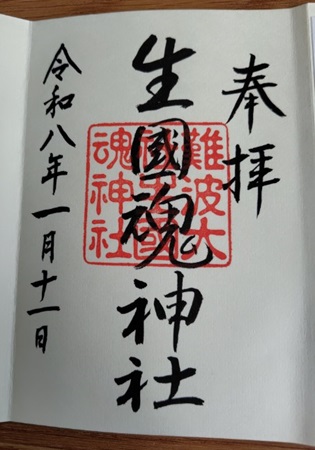 奉拝
生國魂神社
難波大
魂神社
令和八年一月十一日